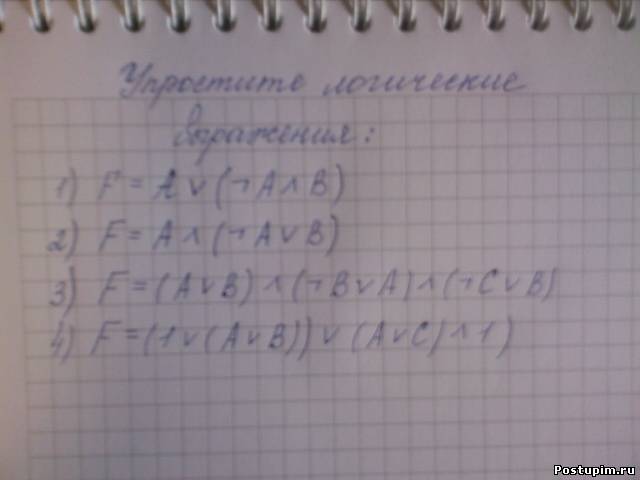 Упростите логические
выражения:
1) F = A ∨ (¬A ∧ B)
2) F = A ∧ (¬A ∨ B)
3) F = (A ∨ B) ∧ (¬B ∨ A) ∧ (¬C ∨ B)
4) F = (1 ∨ (A ∨ B)) ∨ (A ∨ C) ∧ 1)
Postupim.ru